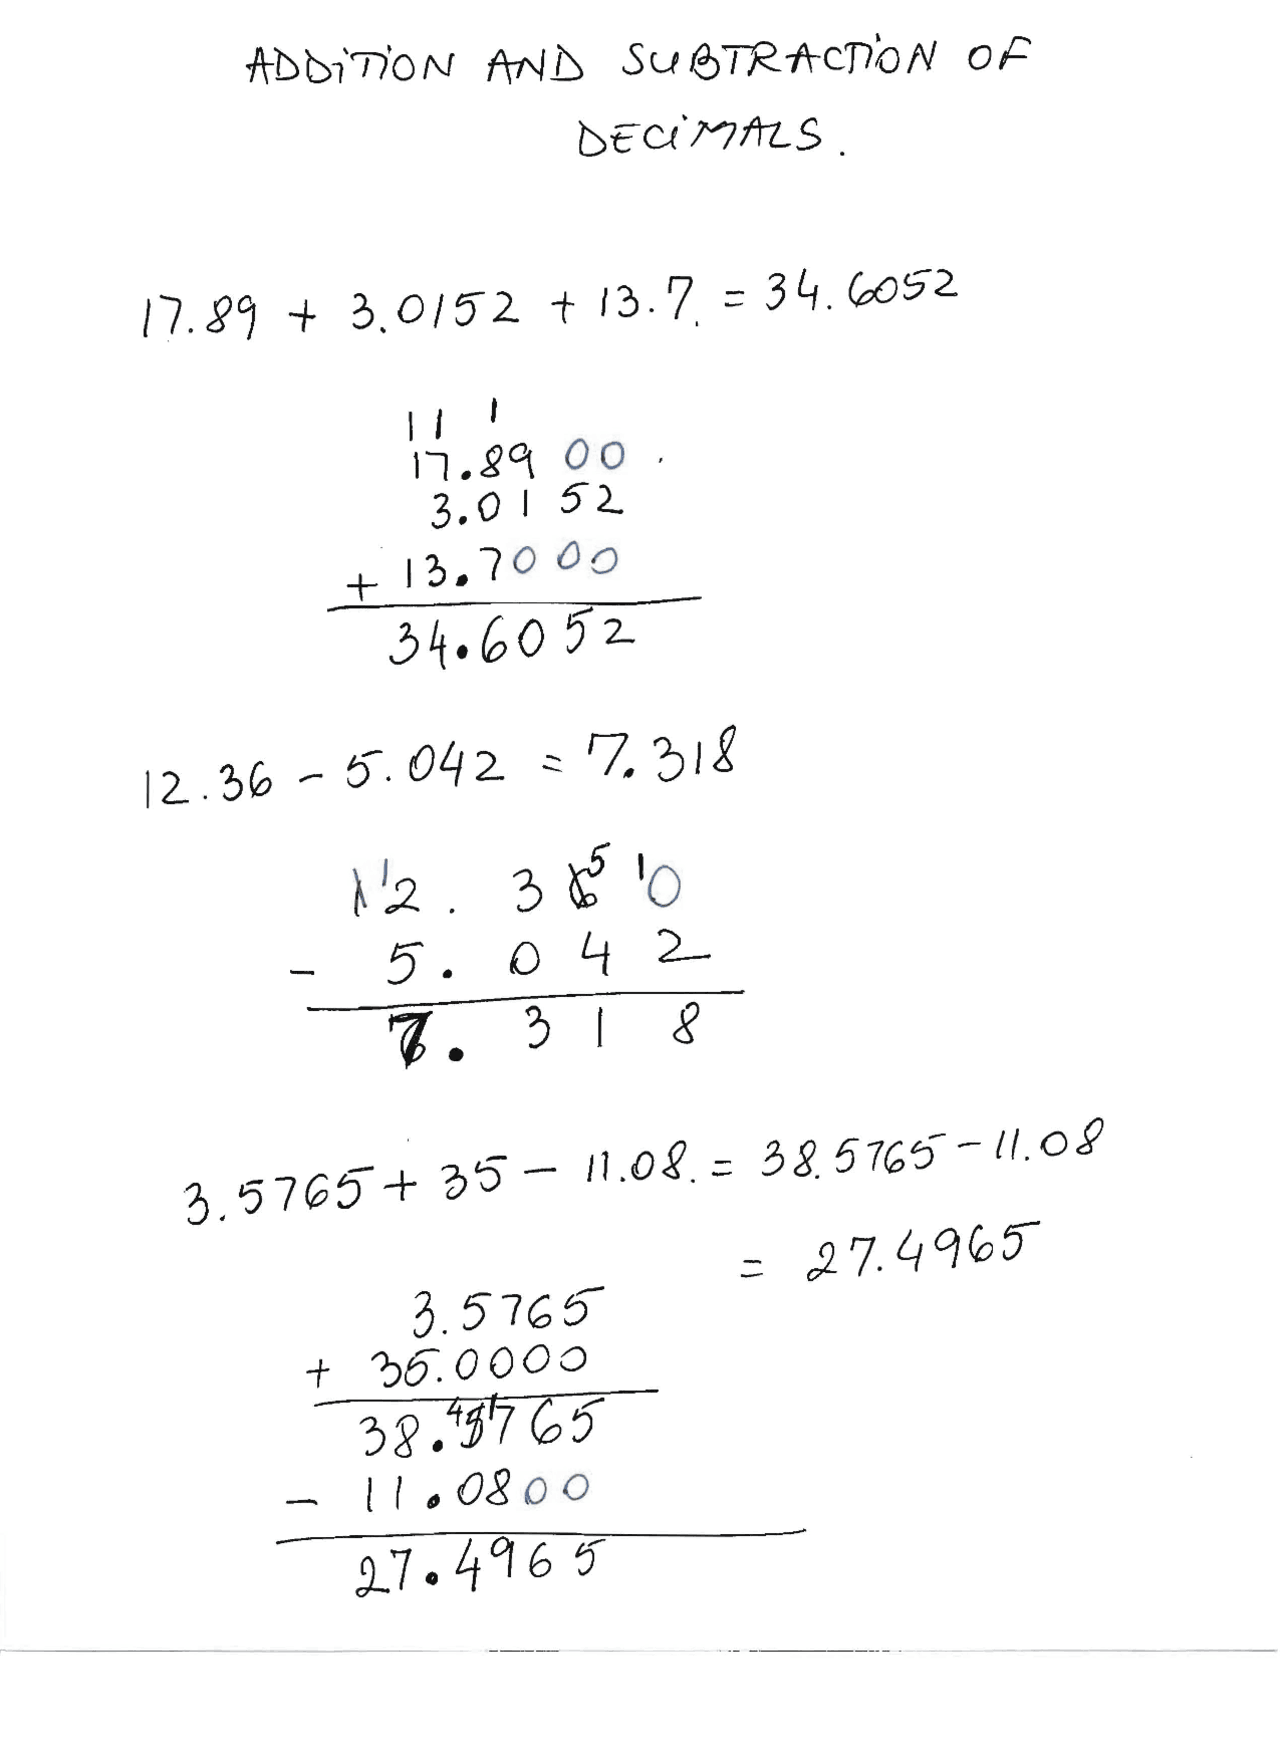 ADDITION AND SUBTRACTION OF
DECIMALS.
17.89 + 3.0152 + 13.7. = 34.6052
11 1
17.8900
3.0152
+ 13.7000
34.6052
12.36 - 5.042 = 7.318
1 5 1
12. 3 6 0
- 5. 0 4 2
7. 3 1 8
3.5765 + 35 - 11.08. = 38.5765 - 11.08
= 27.4965
3.5765
+ 35.0000
4 1
38.5765
- 11.0800
27.4965